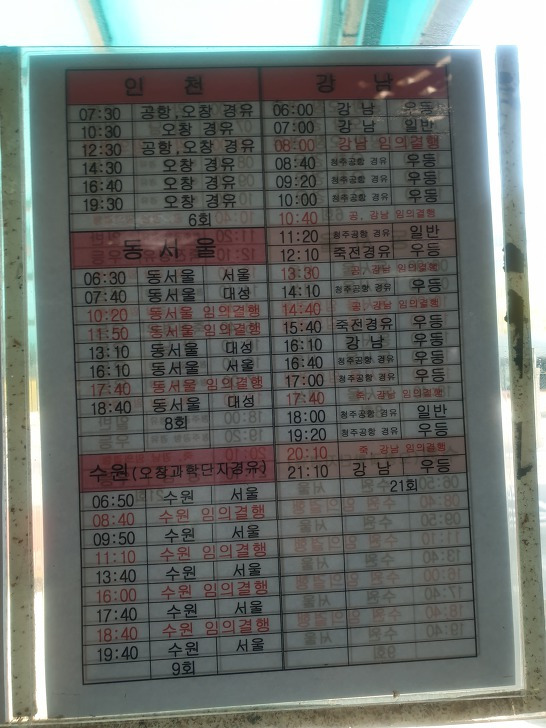 인 천
07:30 공항,오창 경유
10:30 오창 경유
12:30 공항,오창 경유
14:30 오창 경유
16:40 오창 경유
19:30 오창 경유
6회
동서울
06:30 동서울 서울
07:40 동서울 대성
10:20 동서울 임의결행
11:50 동서울 임의결행
13:10 동서울 대성
16:10 동서울 서울
17:40 동서울 임의결행
18:40 동서울 대성
8회
수원(오창과학단지경유)
06:50 수원 서울
08:40 수원 임의결행
09:50 수원 서울
11:10 수원 임의결행
13:40 수원 서울
16:00 수원 임의결행
17:40 수원 서울
18:40 수원 임의결행
19:40 수원 서울
9회
강 남
06:00 강 남 우등
07:00 강 남 일반
08:00 강남 임의결행
08:40 청주공항 경유 우등
09:20 청주공항 경유 우등
10:00 청주공항 경유 우등
10:40 공, 강남 임의결행
11:20 청주공항 경유 일반
12:10 죽전경유 우등
13:30 공, 강남 임의결행
14:10 청주공항 경유 우등
14:40 공, 강남 임의결행
15:40 죽전경유 우등
16:10 강 남 우등
16:40 청주공항 경유 우등
17:00 청주공항 경유 우등
17:40 죽, 강남 임의결행
18:00 청주공항 경유 일반
19:20 청주공항 경유 우등
20:10 죽, 강남 임의결행
21:10 강 남 우등
21회